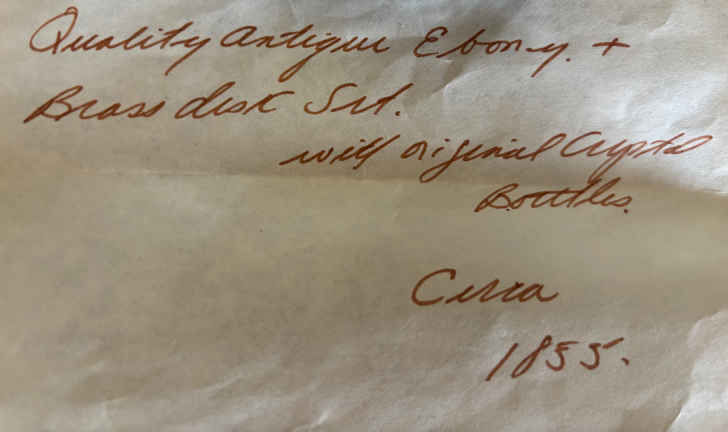 Quality Antique Ebony. +
Brass desk Set.
with original Crystal
Bottles.
Circa
1855.